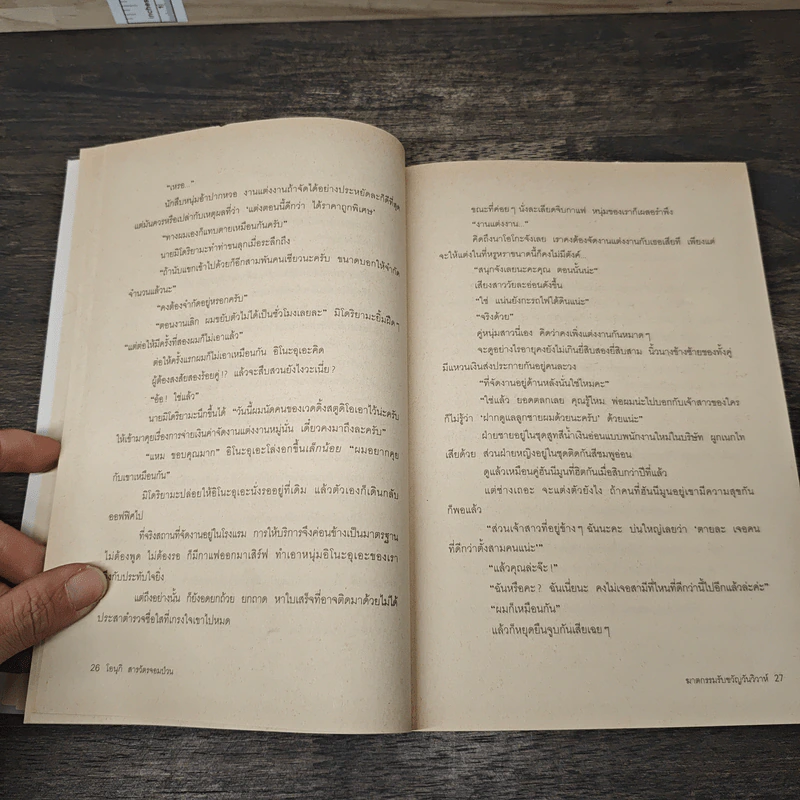 inches
"เหรอ..."
นักสืบหนุ่มอ้าปากหวอ งานแต่งงานถ้าจัดได้อย่างประหยัดละก็ดีที่สุด
แต่มันควรหรือเปล่ากับเหตุผลที่ว่า 'แต่งตอนนี้ดีกว่า ได้ราคาถูกพิเศษ'
"ทางผมเองก็แทบตายเหมือนกันครับ"
นายมิโดริยามะทำท่าขนลุกเมื่อระลึกถึง
"ถ้านับแขกเข้าไปด้วยก็อีกสามพันคนเชียวนะครับ ขนาดบอกให้จำกัด
จำนวนแล้วนะ"
"คงต้องจำกัดอยู่หรอกครับ"
"ตอนงานเลิก ผมขยับตัวไม่ได้เป็นชั่วโมงเลยละ" มิโดริยามะยิ้มฝืดๆ
"แต่ต่อให้มีครั้งที่สองผมก็ไม่เอาแล้ว"
ต่อให้ครั้งแรกผมก็ไม่เอาเหมือนกัน อิโนะอุเอะคิด
ผู้ต้องสงสัยสองร้อยคู่!? แล้วจะสืบสวนยังไงวะเนี่ย?
"อ้อ! ใช่แล้ว"
นายมิโดริยามะนึกขึ้นได้ "วันนี้ผมนัดคนของเวดดิ้งสตูดิโอเอาไว้น่ะครับ
ให้เข้ามาคุยเรื่องการจ่ายเงินค่าจัดงานแต่งงานหมู่นั่น เดี๋ยวคงมาถึงละครับ"
"แหม ขอบคุณมาก" อิโนะอุเอะโล่งอกขึ้นเล็กน้อย "ผมอยากคุย
กับเขาเหมือนกัน"
มิโดริยามะปล่อยให้อิโนะอุเอะนั่งรออยู่ที่เดิม แล้วตัวเองก็เดินกลับ
ออฟฟิศไป
ที่จริงสถานที่จัดงานอยู่ในโรงแรม การให้บริการจึงค่อนข้างเป็นมาตรฐาน
ไม่ต้องพูด ไม่ต้องรอ ก็มีกาแฟออกมาเสิร์ฟ ทำเอาหนุ่มอิโนะอุเอะของเรา
ถึงกับประทับใจยิ่ง
แต่ถึงอย่างนั้น ก็ยังอดยกถ้วย ยกถาด หาใบเสร็จที่อาจติดมาด้วยไม่ได้
ประสาตำรวจซื่อใสที่เกรงใจเขาไปหมด
26 โอนุกิ สารวัตรจอมป่วน
ขณะที่ค่อยๆ นั่งละเลียดจิบกาแฟ หนุ่มของเราก็เผลอรำพึง
"งานแต่งงาน..."
คิดถึงนาโอโกะจังเลย เราคงต้องจัดงานแต่งงานกับเธอเสียที เพียงแต่
จะให้แต่งในที่หรูหราขนาดนี้ก็คงไม่มีตังค์...
"สนุกจังเลยนะคะคุณ ตอนนั้นน่ะ"
เสียงสาววัยละอ่อนดังขึ้น
"ใช่ แน่นยังกะรถไฟใต้ดินแน่ะ"
"จริงด้วย"
คู่หนุ่มสาวนี่เอง คิดว่าคงเพิ่งแต่งงานกันหมาดๆ
จะดูอย่างไรอายุคงยังไม่เกินยี่สิบสองยี่สิบสาม นิ้วนางข้างซ้ายของทั้งคู่
มีแหวนเงินส่งประกายกันอยู่คนละวง
"ที่จัดงานอยู่ด้านหลังนั่นใช่ไหมคะ"
"ใช่แล้ว ยอดตลกเลย คุณรู้ไหม พ่อผมน่ะไปบอกกับเจ้าสาวของใคร
ก็ไม่รู้ว่า 'ฝากดูแลลูกชายผมด้วยนะครับ' ด้วยแน่ะ"
ฝ่ายชายอยู่ในชุดสูทสีน้ำเงินอ่อนแบบพนักงานใหม่ในบริษัท ผูกเนกไท
เสียด้วย ส่วนฝ่ายหญิงอยู่ในชุดติดกันสีชมพูอ่อน
ดูแล้วเหมือนคู่ฮันนีมูนที่ฮิตกันเมื่อสิบกว่าปีที่แล้ว
แต่ช่างเถอะ จะแต่งตัวยังไง ถ้าคนที่ฮันนีมูนอยู่เขามีความสุขกัน
ก็พอแล้ว
"ส่วนเจ้าสาวที่อยู่ข้างๆ ฉันนะคะ บ่นใหญ่เลยว่า 'ตายละ เจอคน
ที่ดีกว่าตั้งสามคนแน่ะ'"
"แล้วคุณล่ะจ๊ะ!"
"ฉันหรือคะ? ฉันเนี่ยนะ คงไม่เจอสามีที่ไหนที่ดีกว่านี้ไปอีกแล้วล่ะค่ะ"
"ผมก็เหมือนกัน"
แล้วก็หยุดยืนจูบกันเสียเฉยๆ
ฆาตกรรมรับขวัญวันวิวาห์ 27